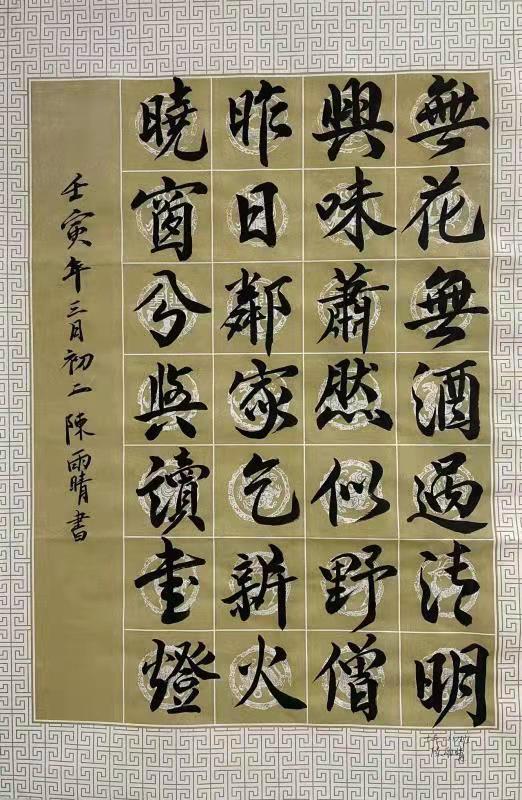 無花無酒過清明
興味蕭然似野僧
昨日鄰家乞新火
曉窗分與讀書燈
壬寅年三月初二陳雨晴書